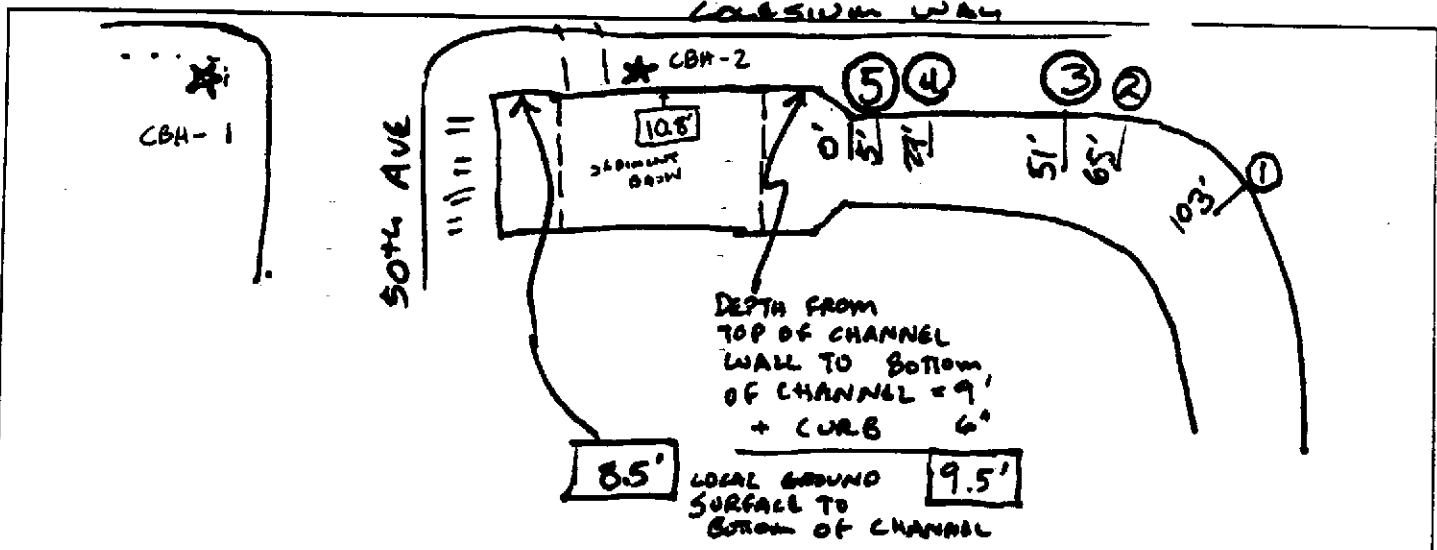 COLESIUM WAY
CBH-1
50TH AVE
CBH-2
10.8'
SEDIMENT
BASIN
5
4
3
2
1
0'
5'
51'
65'
103'
DEPTH FROM
TOP OF CHANNEL
WALL TO BOTTOM
OF CHANNEL = 9'
+ CURB 6"
8.5'
LOCAL GROUND
SURFACE TO
BOTTOM OF CHANNEL
9.5'